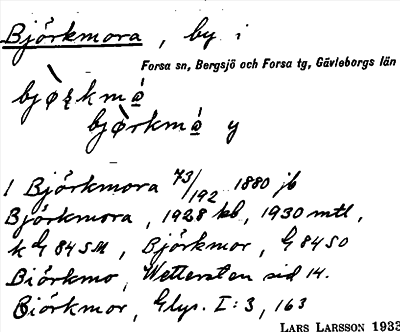 Björkmora, by i
Forsa sn, Bergsjö och Forsa tg, Gävleborgs län
bjø̀ʀkmǫ́
bjø̀rkmǫ́ y
1 Björkmora 73/192 1880 jb
Björkmora, 1928 kb, 1930 mtl,
k G 84 SM, Björkmor, G 84 SO
Biörkmo, Wettersten sid 14.
Biörkmor, Glys. I:3, 163
LARS LARSSON 1933